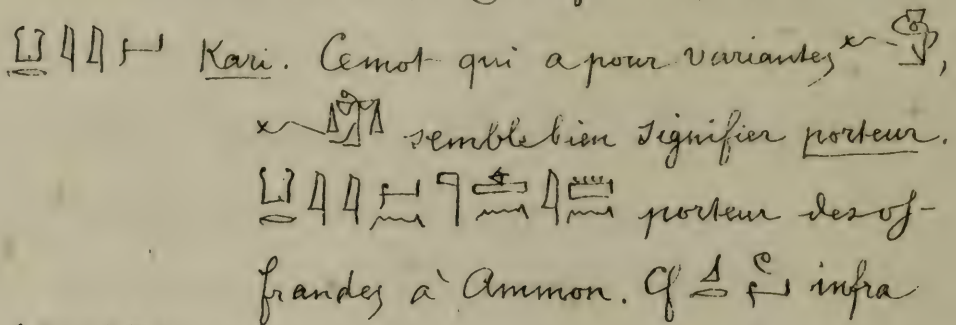 𓂓𓂋𓇋𓇋𓂝 Kari. Ce mot qui a pour variantes
semble bien signifier porteur.
𓂓𓂋𓇋𓇋𓂝𓈖𓊹𓊵𓈖𓇋𓏠𓈖 porteur des of-
frandes à Ammon. Cf infra